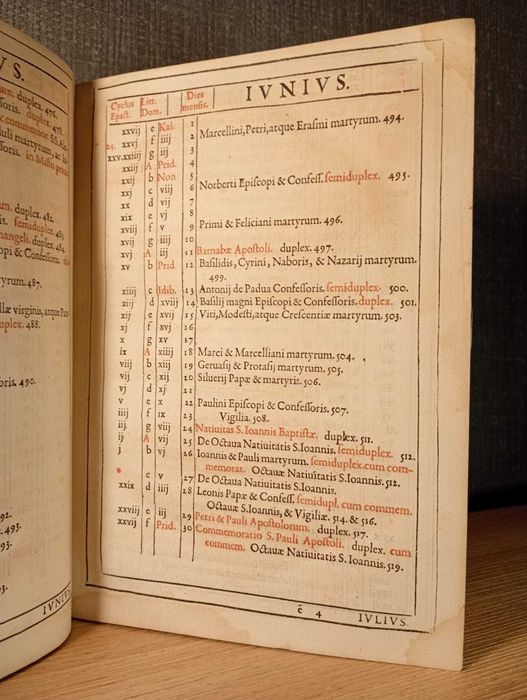 VS.
duplex. 476.
oris. duplex. 478.
commemor. SS. Ale
uli martyrum. & lo
oris. in Missa pri
um. duplex. 482.
oris. semiduplex. 483.
angeli. duplex.
opi & Confess. dix
martyrum. 487.
llæ virginis, atque
uplex. 488.
oris. 490.
492.
493.
493.
93.
93.
IVNIVS
IVNIVS.
Cyclus Epact. Litt. Dom. Dies mensis.
xxvij e Kal. 1
25. xxvj f iiij 2 Marcellini, Petri, atque Erasmi martyrum. 494.
xxv.xxiiij g iij 3
xxiij A Prid. 4
xxij b Non 5
xxj c viij 6 Norberti Episcopi & Confess. semiduplex. 495.
xx d vij 7
xix e vj 8
xviij f v 9 Primi & Feliciani martyrum. 496.
xvij g iiij 10
xvj A iij 11 Barnabæ Apostoli. duplex. 497.
xv b Prid. 12 Basilidis, Cyrini, Naboris, & Nazarij martyrum.
499.
xiiij c Idib. 13 Antonij de Padua Confessoris. semiduplex. 500.
xiij d xviij 14 Basilij magni Episcopi & Confessoris. duplex. 501.
xij e xvij 15 Viti, Modesti, atque Crescentiæ martyrum. 503.
xj f xvj 16
x g xv 17
ix A xiiij 18 Marci & Marcelliani martyrum. 504.
viij b xiij 19 Geruasij & Protasij martyrum. 505.
vij c xij 20 Siluerij Papæ & martyris. 506.
vj d xj 21
v e x 22 Paulini Episcopi & Confessoris. 507.
iiij f ix 23 Vigilia. 508.
iij g viij 24 Natiuitas S. Ioannis Baptistæ. duplex. 511.
ij A vij 25 De Octaua Natiuitatis S. Ioannis. semiduplex. 512.
j b vj 26 Ioannis & Pauli martyrum. semiduplex. cum com-
memorat. Octauæ Natiuitatis S. Ioannis. 512.
* c v 27 De Octaua Natiuitatis S. Ioannis.
xxix d iiij 28 Leonis Papæ & Confess. semidupl. cum commem.
Octauæ S. Ioannis, & Vigiliæ. 514. & 516.
xxviij e iij 29 Petri & Pauli Apostolorum. duplex. 517.
xxvij f Prid. 30 Commemoratio S. Pauli Apostoli. duplex. cum
commem. Octauæ Natiuitatis S. Ioannis. 519.
c 4 IVLIVS.